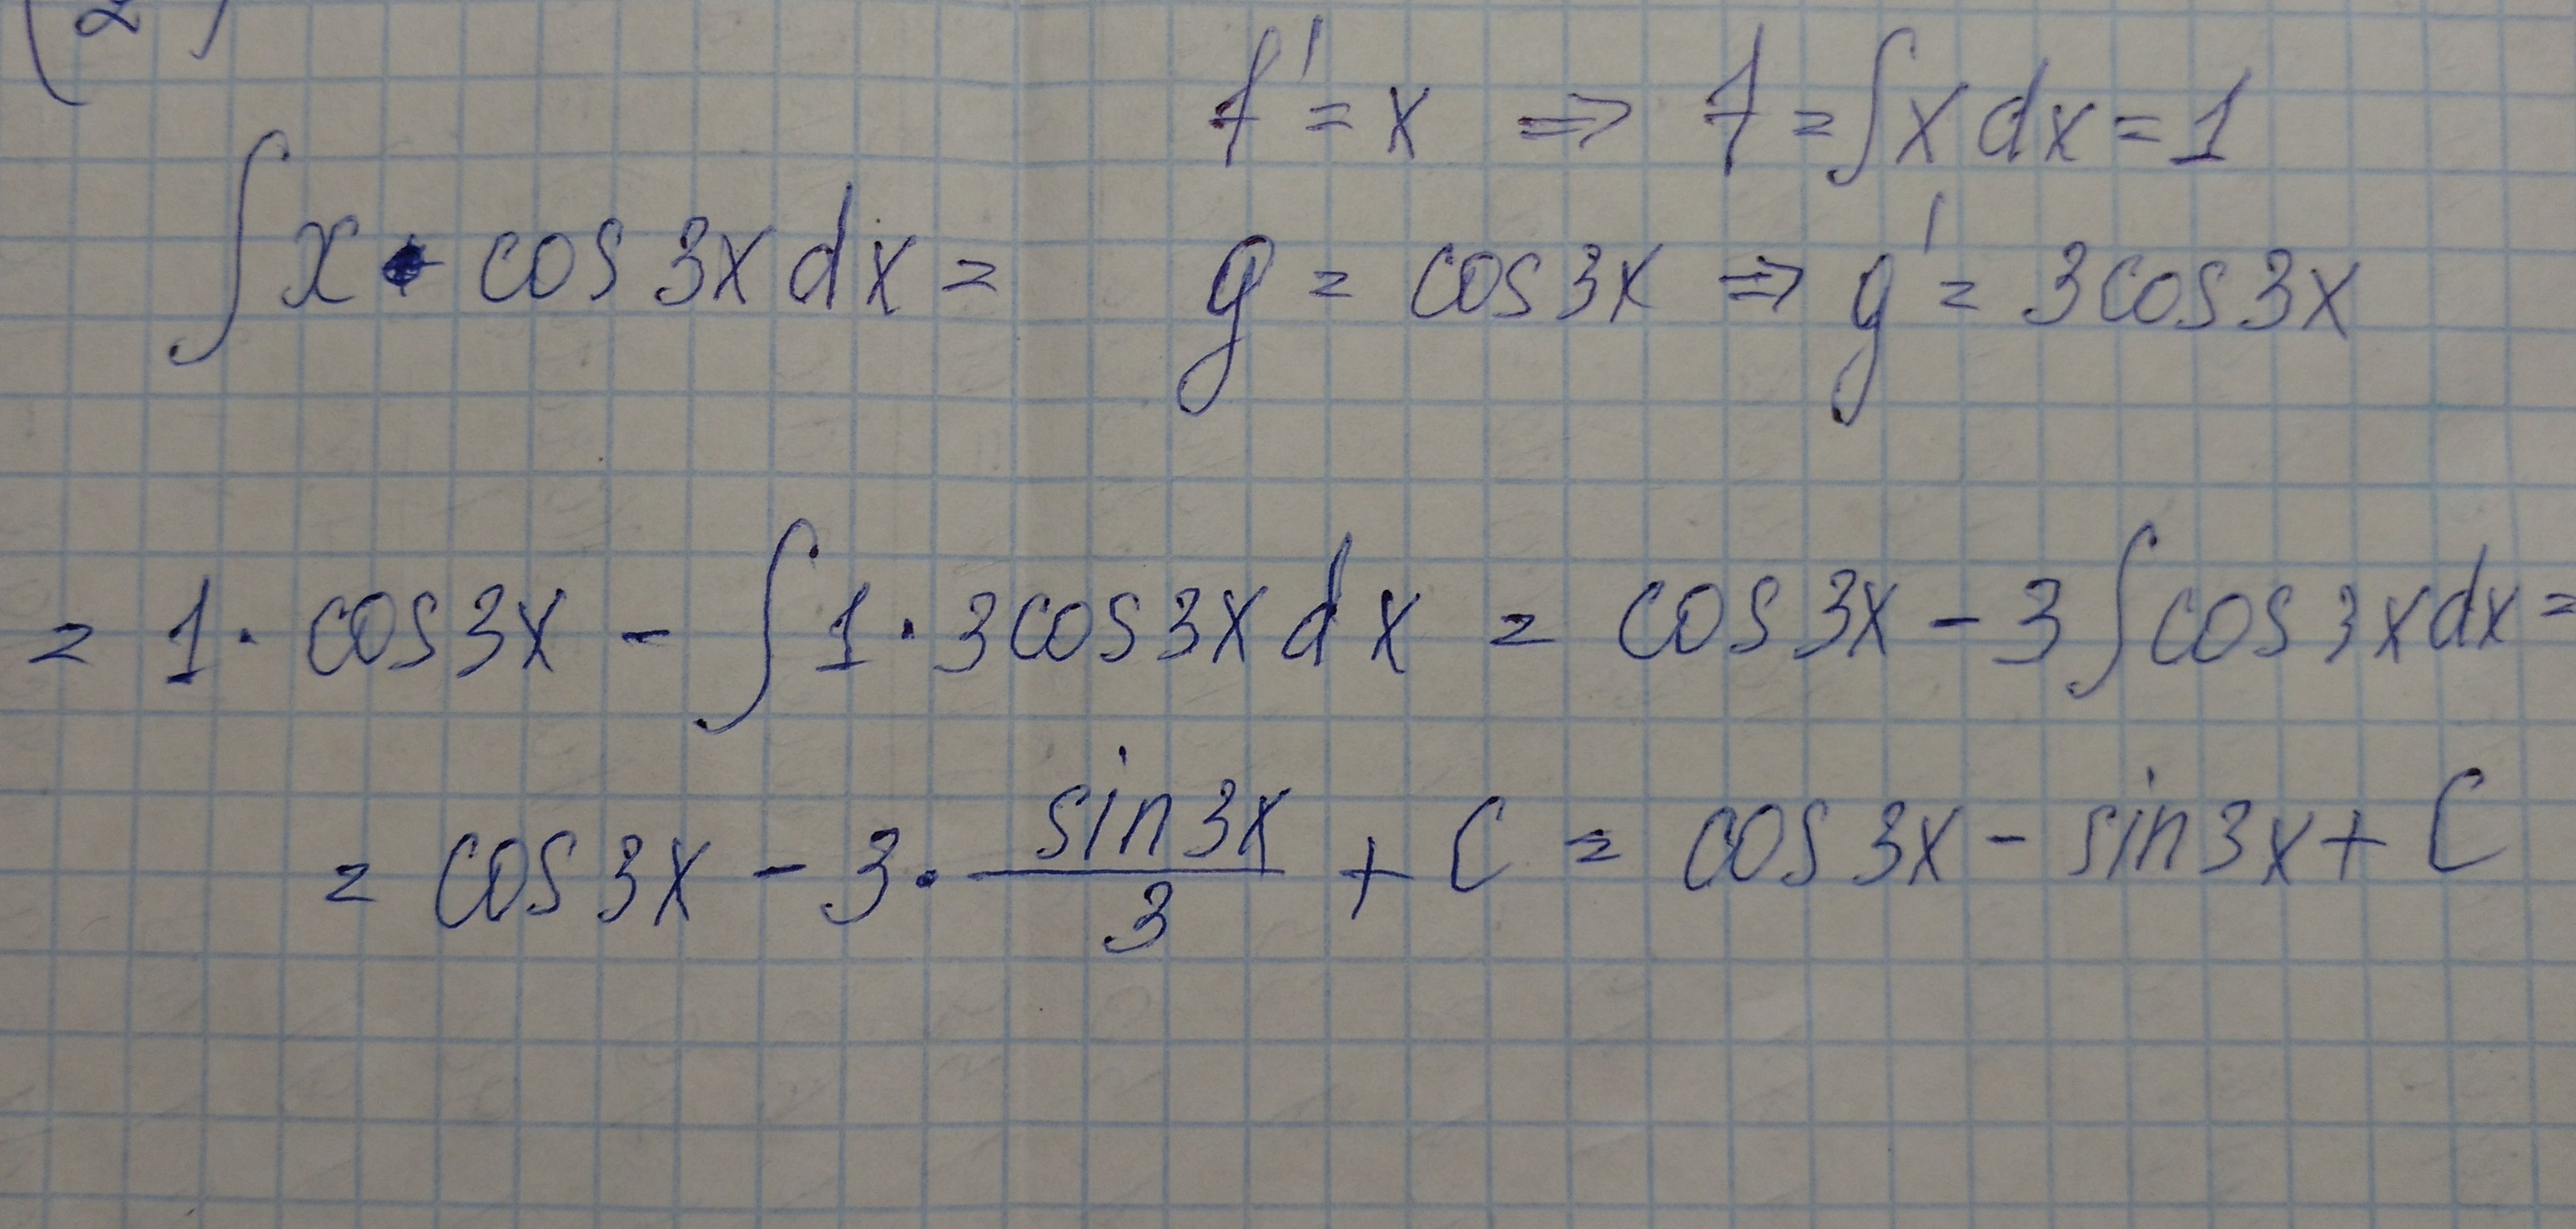 (2)
f' = x ⇒ f = ∫x dx = 1
∫x · cos 3x dx =
g = cos 3x ⇒ g' = 3cos 3x
= 1 · cos 3x - ∫1 · 3cos 3x dx = cos 3x - 3∫cos 3x dx =
= cos 3x - 3 · sin 3x / 3 + C = cos 3x - sin 3x + C